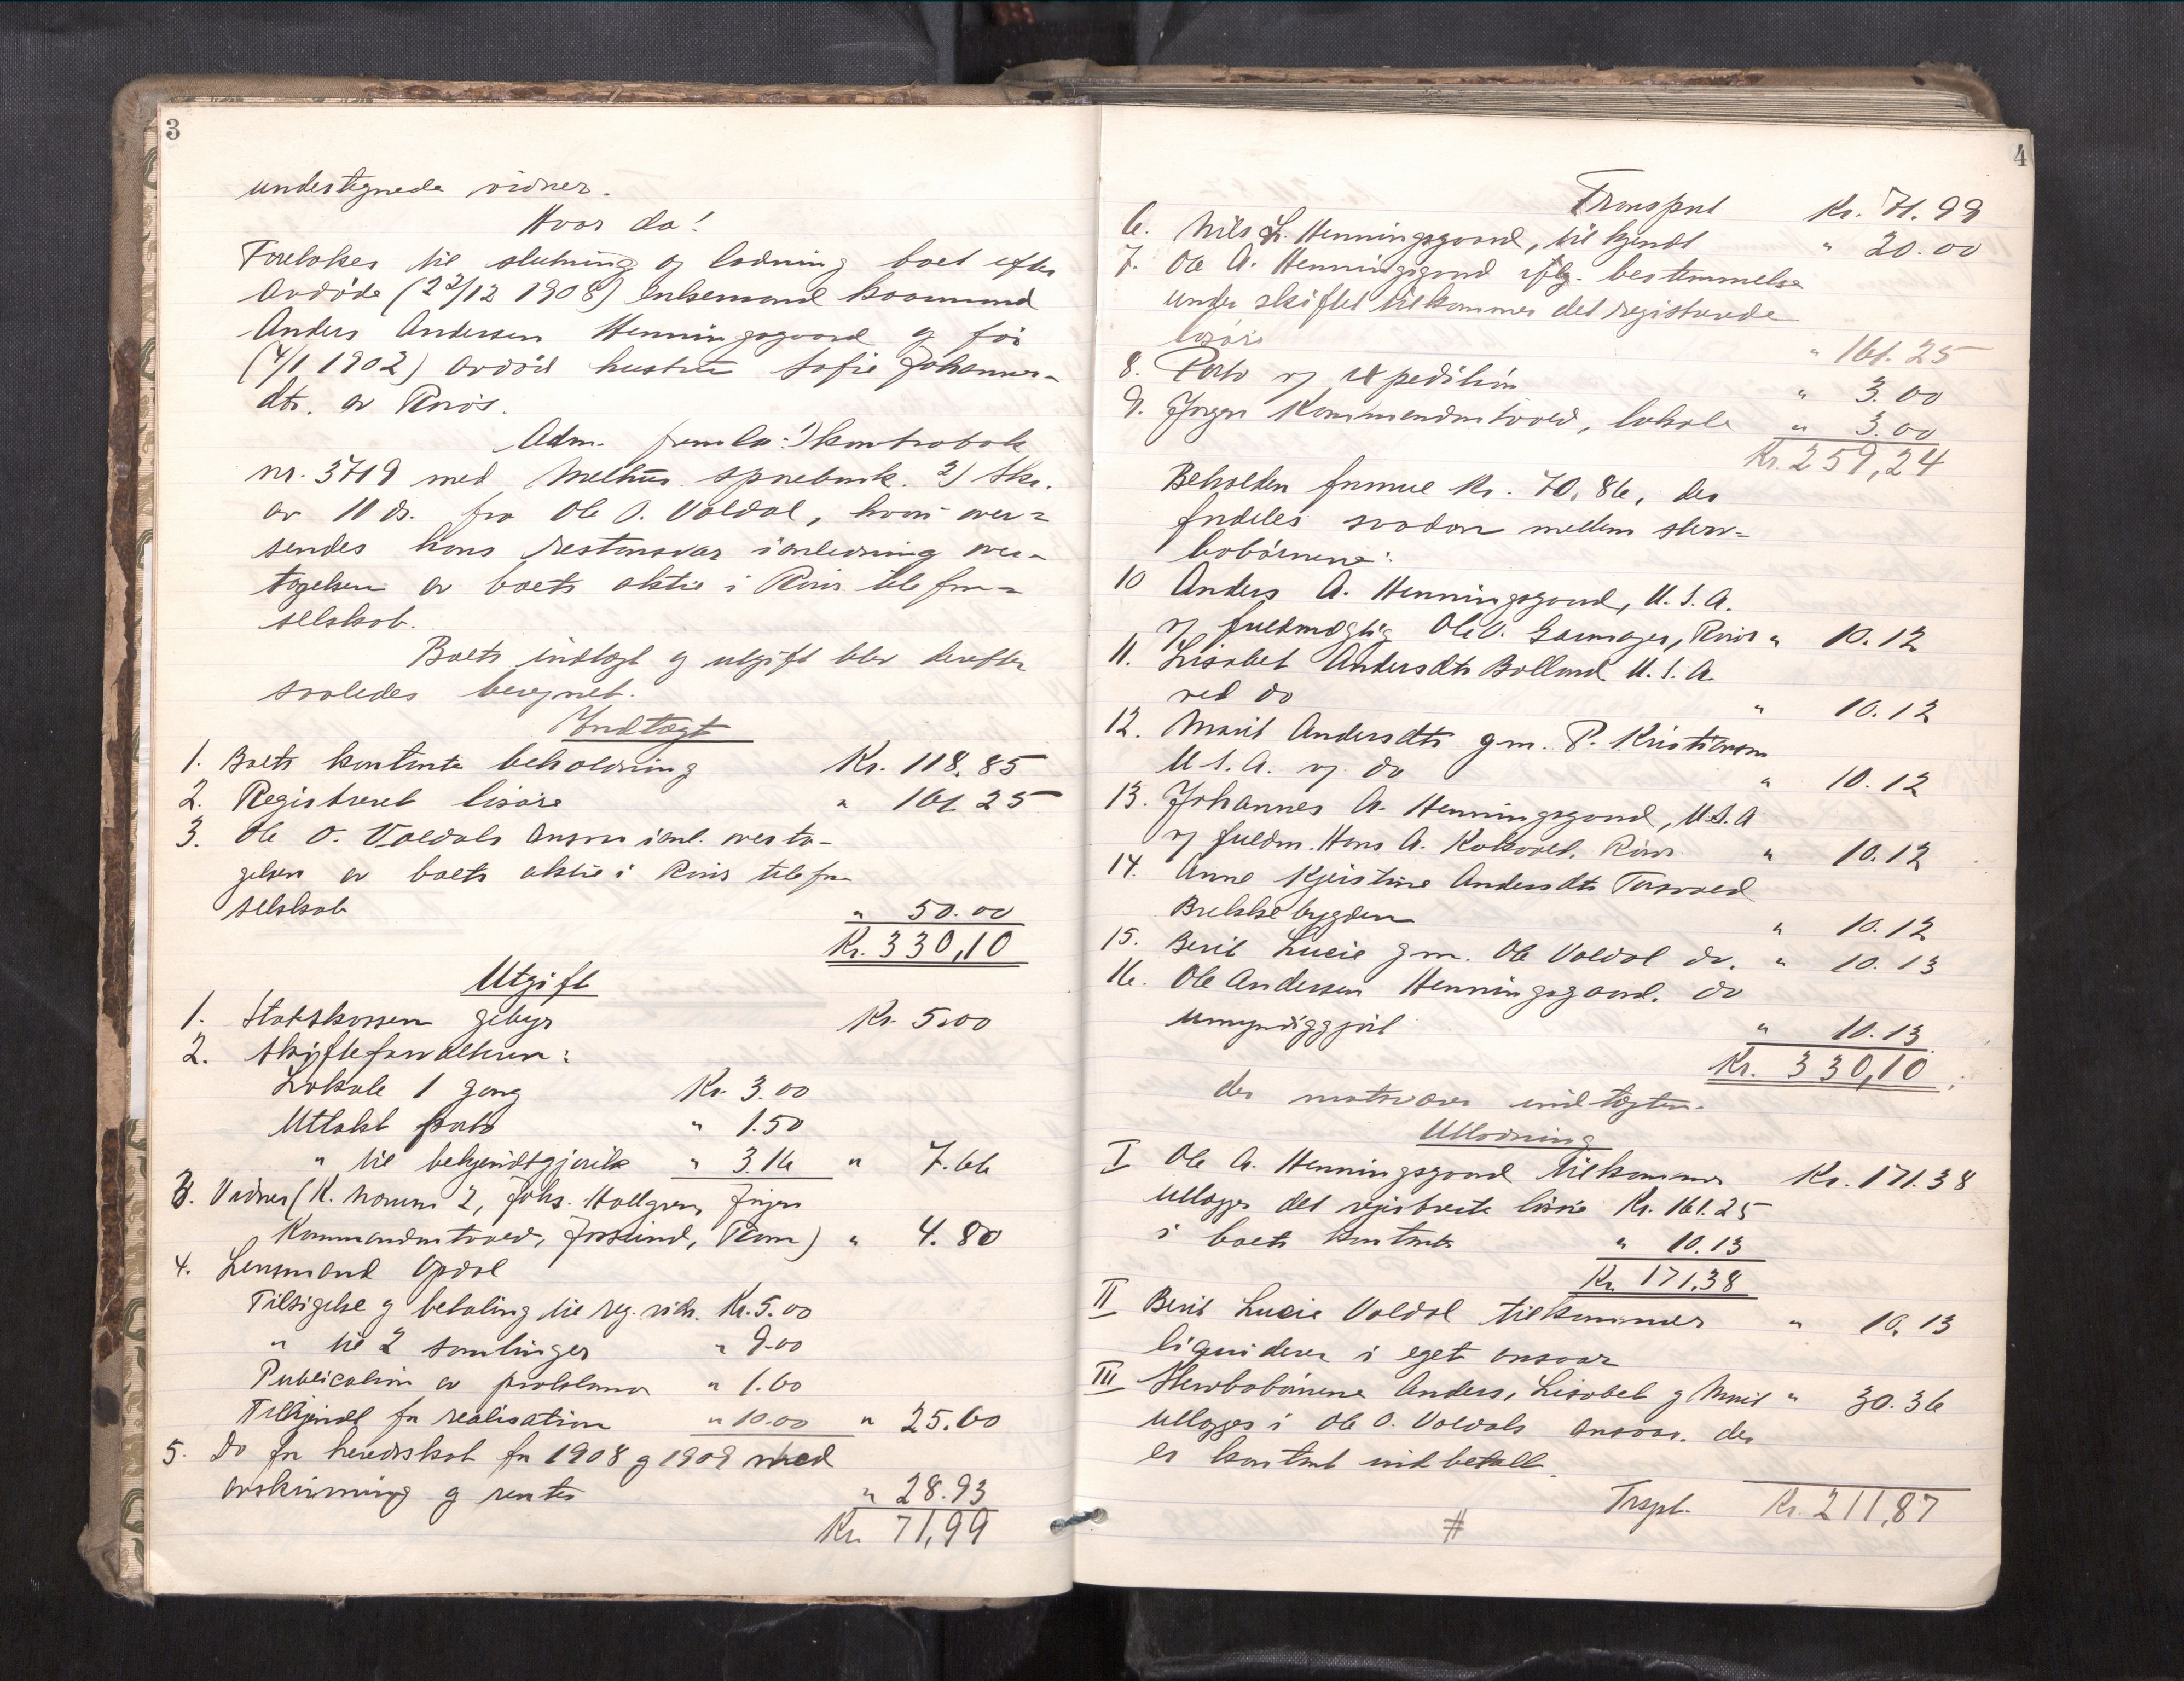 3
undertegnede vidner.
Hvor da!
Foretokes til slutning og lodning boet efter
avdøde (22/12 1908) enkemand
Anders Andersen Henningsgaard og før
(4/1 1902) avdød hustru Sofie Johannes-
dtr. av Røros.
Adm. fremla: 1) kontrabok
nr. 3719 med Melhus sparebank. 2) Skr.
av 11 ds. fra Ole O. Voldal, hvori over-
sendes hans restansvar i anledning over-
tagelsen av boets aktie i Røros telefon-
selskab.
Boets indtægt og utgift blev derefter
saaledes beregnet.
Indtægt
1. Boets kontante beholdning Kr. 118.85
2. Registreret løsøre " 161.25
3. Ole O. Voldals ansvar i anl. overta-
gelsen av boets aktie i Røros telefon
selskab " 50.00
Kr. 330,10
Utgift
1. Statskassen gebyr Kr. 5.00
2. Skifteforvalteren:
Lokale 1 gang Kr. 3.00
Utlakt porto " 1.50
" til bekjendtgjørelse " 3.16 " 7.66
3. Vidner (K. 2, Johs. Hallgren, Jørgen
Kommandantvold, ) " 4.80
4. Lensmand Opdal
Tilsigelse og betaling til reg. vidn. Kr. 5.00
" til 2 samlinger " 9.00
Publication av proklama " 1.60
Tilkjendt for realisation " 10.00 " 25.60
5. Do for heredskat for 1908 og 1909 med
avskrivning og renter " 28.93
Kr. 71,99
4
Transport Kr. 71.99
6. Nils L. Henningsgaard, tilkjendt " 20.00
7. Ole A. Henningsgaard iflg. bestemmelse
under skiftet tilkommer det registrerede
løsøre " 161.25
8. Porto og expedition " 3.00
9. Jørgen Kommandantvold, lokale " 3.00
Kr. 259,24
Beholden formue Kr. 70,86, der
fordeles saadan mellem sterv-
bobørnene:
10 Anders A. Henningsgaard, U.S.A.
v/ fuldmægtig Ole O. Galaagen, Røros " 10.12
11. Lisabet Andersdtr Bolland U.S.A
ved do " 10.12
12. Marit Andersdtr gm. P. Kristiansen
U.S.A. v/ do " 10.12
13. Johannes A. Henningsgaard, U.S.A
v/ fuldm. Hans A. Kokvold, Røros " 10.12
14. Anne Kjerstine Andersdtr Torsvold
Brekkebygden " 10.12
15. Berit Lucie gm. Ole Voldal do. " 10.13
16. Ole Andersen Henningsgaard. do
umyndiggjort " 10.13
Kr. 330,10
der motsvarer indtægten.
Utlodning
I Ole A. Henningsgaard tilkommer Kr. 171.38
utlægges det registrerte løsøre Kr. 161.25
i boets kontante " 10.13
Kr. 171,38
II Berit Lucie Voldal tilkommer " 10.13
liqviderer i eget ansvar
III Stervbobørnene Anders, Lisabet og Marit " 30.36
utlægges i Ole O. Voldals ansvar. der
er kontant indbetalt.
Trspt. Kr. 211,87
#